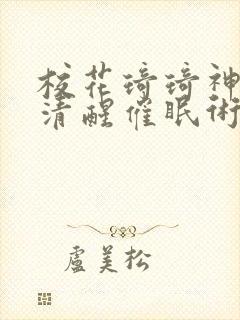 校花琦琦神
清醒催眠術
盧美松